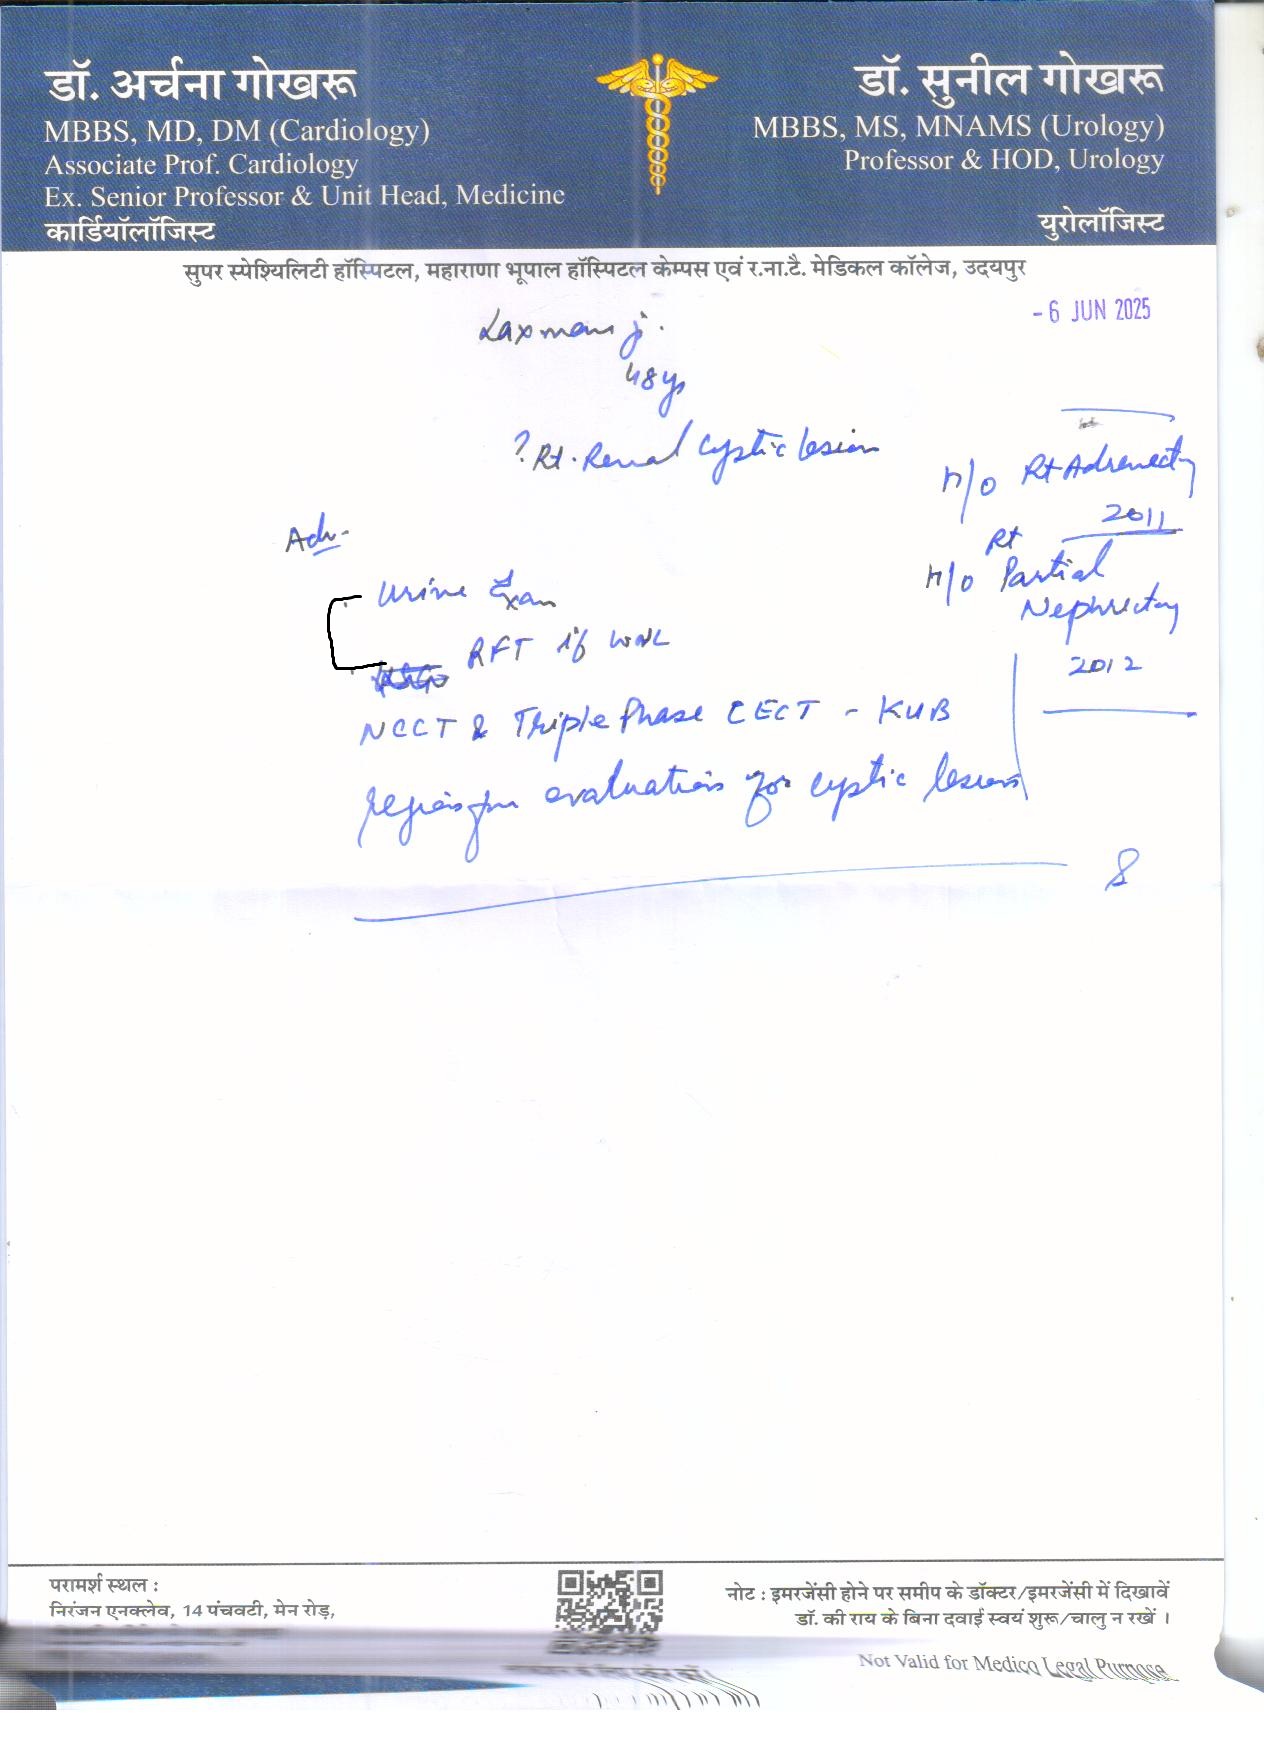 डॉ. अर्चना गोखरू
MBBS, MD, DM (Cardiology)
Associate Prof. Cardiology
Ex. Senior Professor & Unit Head, Medicine
कार्डियॉलॉजिस्ट
डॉ. सुनील गोखरू
MBBS, MS, MNAMS (Urology)
Professor & HOD, Urology
युरोलॉजिस्ट
सुपर स्पेश्यिलिटी हॉस्पिटल, महाराणा भूपाल हॉस्पिटल केम्पस एवं र.ना.टै. मेडिकल कॉलेज, उदयपुर
-6 JUN 2025
Laxman ji.
48 ys
? Rt. Renal Cystic lesion
H/O Rt Adrenectomy
2011
Rt
H/O Partial
Nephrectomy
2012
Adv-
Urine Exam
RFT if WNL
NCCT & Triple Phase CECT - KUB
region for evaluation for cystic lesion
परामर्श स्थल :
निरंजन एनक्लेव, 14 पंचवटी, मेन रोड़,
नोट : इमरजेंसी होने पर समीप के डॉक्टर/इमरजेंसी में दिखावें
डॉ. की राय के बिना दवाई स्वयं शुरू/चालु न रखें ।
Not Valid for Medico Legal Purpose